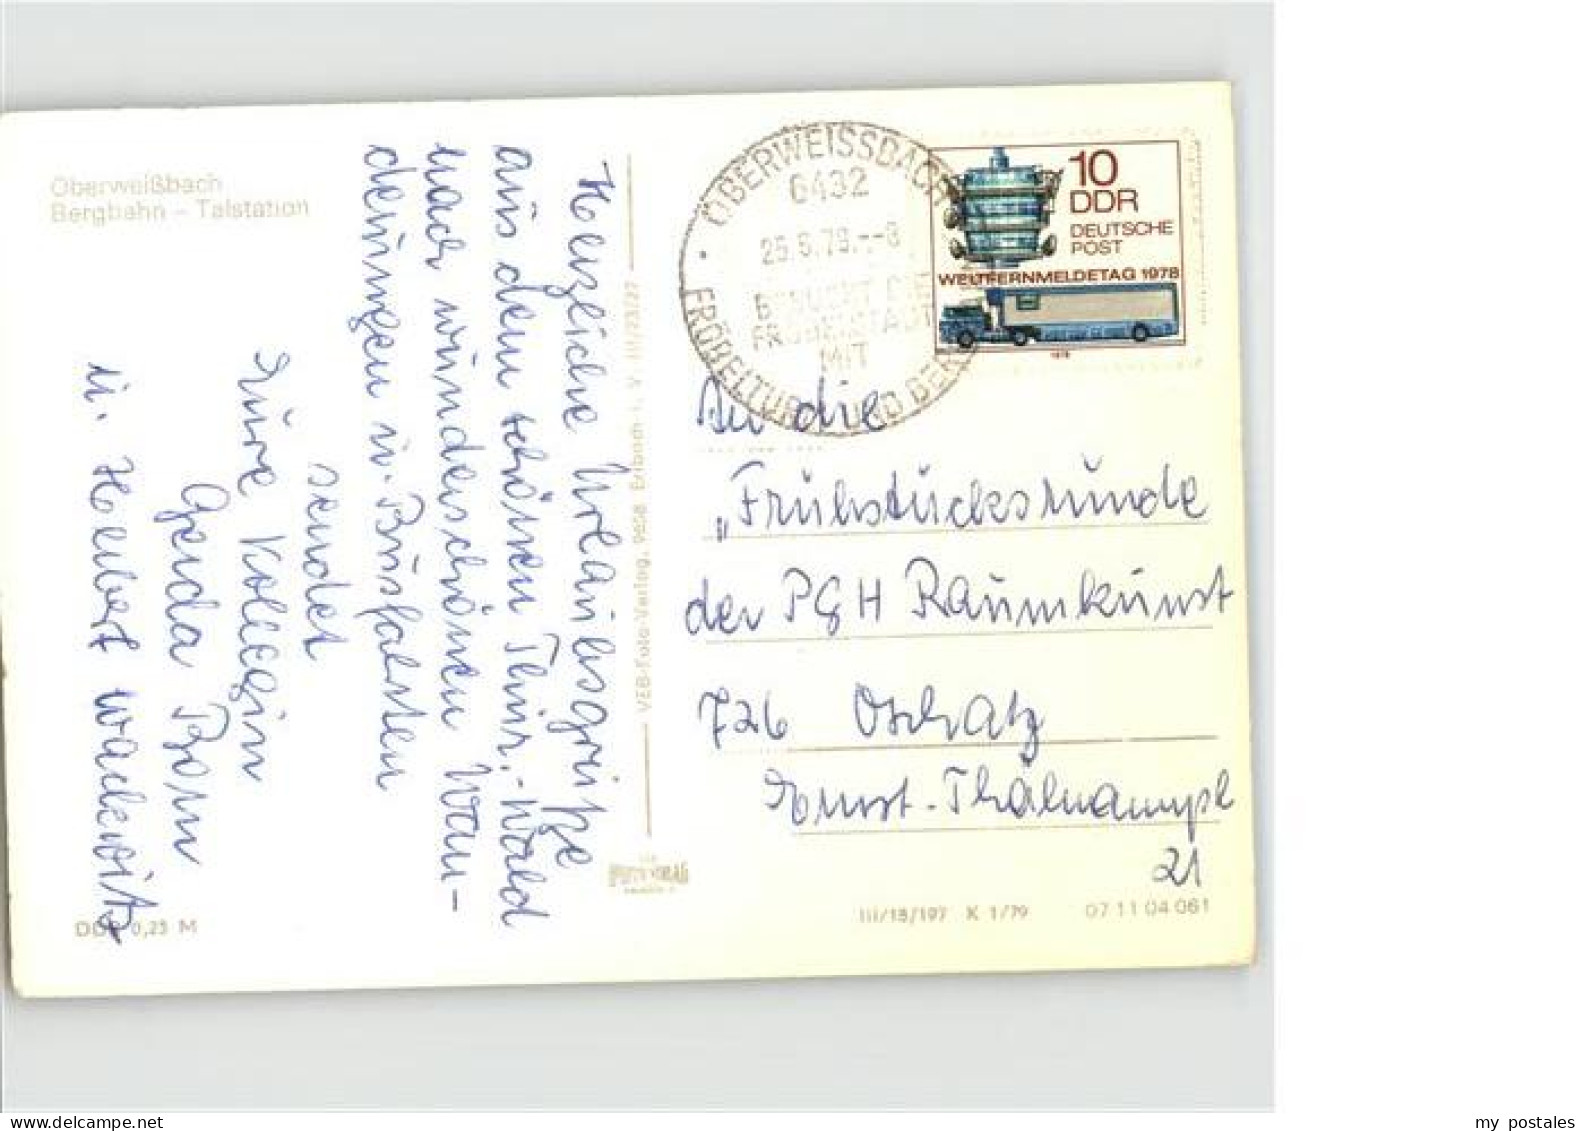 Oberweißbach
Bergbahn – Talstation
Herzliche Urlaubsgrüße
aus dem schönen Thür.-Wald
nach wunderschönen Wan-
derungen u. Busfahrten
sendet
Eure Kollegin
Gerda Born
u. Herbert
DDR 0,25 M
VEB-Foto-Verlag, 9658 Erlbach i. V. III/23/27
OBERWEISSBACH
6432
MIT
FRÖBELTURM UND BERG
10
DDR
DEUTSCHE
POST
WELTFERNMELDETAG 1978
1978
An die
„Frühstücksrunde
der PGH Raumkunst
726 Oschatz
Ernst-Thälmannpl
21
III/18/197 K 1/79 07 11 04 061
my postales